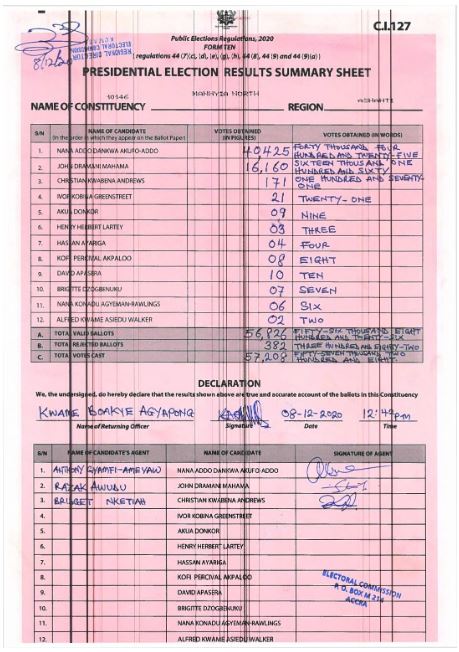 C.I.127
Public Elections Regulations, 2020
FORM TEN
( regulations 44 (7)(c), (d), (e), (g), (h), 44 (8), 44 (9) and 44 (9)(a) )
PRESIDENTIAL ELECTION RESULTS SUMMARY SHEET
MANHYIA NORTH
NAME OF CONSTITUENCY REGION ASHANTI
S/N NAME OF CANDIDATE VOTES OBTAINED VOTES OBTAINED (IN WORDS)
(In the order in which they appear on the Ballot Paper) (IN FIGURES)
1. NANA ADDO DANKWA AKUFO-ADDO 40425 FORTY THOUSAND FOUR HUNDRED AND TWENTY-FIVE
2. JOHN DRAMANI MAHAMA 16,160 SIXTEEN THOUSAND ONE HUNDRED AND SIXTY
3. CHRISTIAN KWABENA ANDREWS 171 ONE HUNDRED AND SEVENTY-ONE
4. IVOR KOBINA GREENSTREET 21 TWENTY-ONE
5. AKUA DONKOR 09 NINE
6. HENRY HERBERT LARTEY 03 THREE
7. HASSAN AYARIGA 04 FOUR
8. KOFI PERCIVAL AKPALOO 08 EIGHT
9. DAVID APASERA 10 TEN
10. BRIGITTE DZOGBENUKU 07 SEVEN
11. NANA KONADU AGYEMAN-RAWLINGS 06 SIX
12. ALFRED KWAME ASIEDU WALKER 02 TWO
A. TOTAL VALID BALLOTS 56,826 FIFTY-SIX THOUSAND EIGHT HUNDRED AND TWENTY-SIX
B. TOTAL REJECTED BALLOTS 382 THREE HUNDRED AND EIGHTY-TWO
C. TOTAL VOTES CAST 57,208 FIFTY-SEVEN THOUSAND TWO HUNDRED AND EIGHT
DECLARATION
We, the undersigned, do hereby declare that the results shown above are true and accurate account of the ballots in this Constituency
KWAME BOAKYE AGYAPONG 08-12-2020
Name of Returning Officer Signature Date Time
S/N NAME OF CANDIDATE'S AGENT NAME OF CANDIDATE SIGNATURE OF AGENT
1. ANTHONY GYAMFI-AMEYAW NANA ADDO DANKWA AKUFO ADDO
2. RAZAK AWUDU JOHN DRAMANI MAHAMA
3. BRIDGET NKETIAH CHRISTIAN KWABENA ANDREWS
4. IVOR KOBINA GREENSTREET
5. AKUA DONKOR
6. HENRY HERBERT LARTEY
7. HASSAN AYARIGA
8. KOFI PERCIVAL AKPALOO
9. DAVID APASERA
10. BRIGITTE DZOGBENUKU
11. NANA KONADU AGYEMAN-RAWLINGS
12. ALFRED KWAME ASIEDU WALKER
ELECTORAL COMMISSION
P. O. BOX M 214
ACCRA